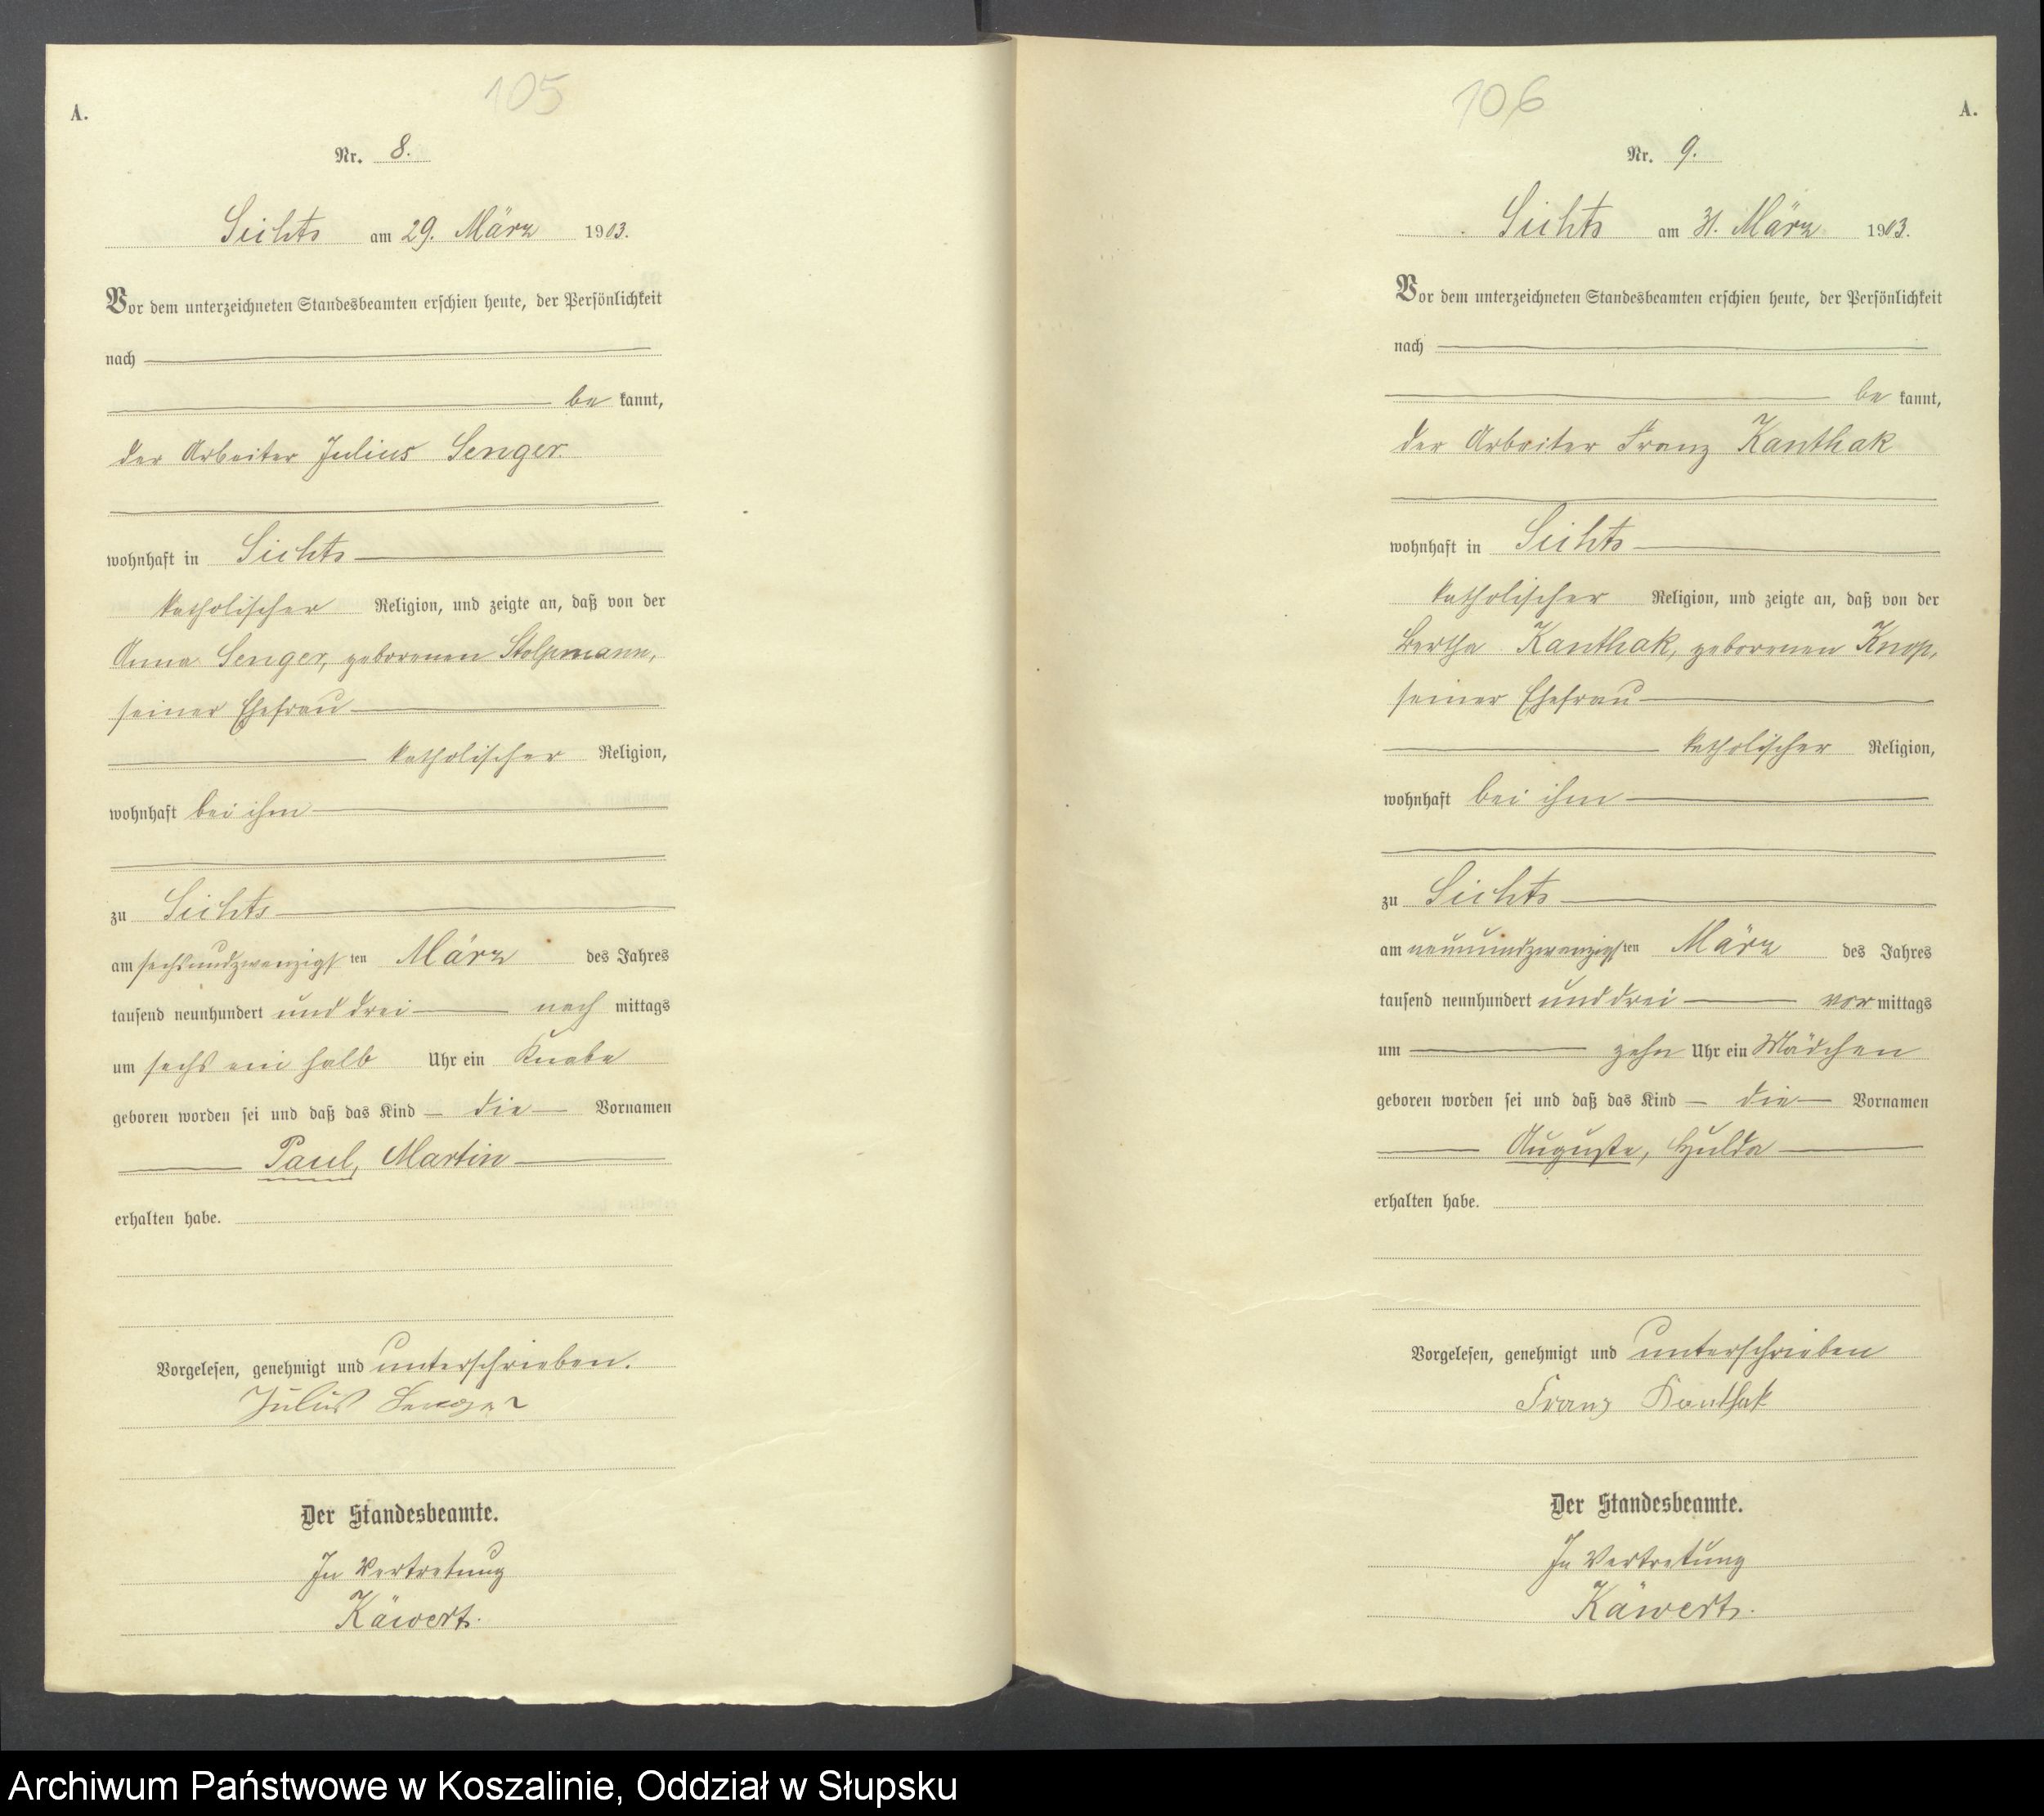 105
A.
Nr. 8.
Sichts am 29. März 1903.
Vor dem unterzeichneten Standesbeamten erschien heute, der Persönlichkeit
nach
be kannt,
der Arbeiter Julius Senger
wohnhaft in Sichts
katholischer Religion, und zeigte an, daß von der
Anna Senger, geborenen Stolpmann,
seiner Ehefrau
katholischer Religion,
wohnhaft bei ihm
zu Sichts
am sechsundzwanzigsten März des Jahres
tausend neunhundert und drei nach mittags
um sechs ein halb Uhr ein Knabe
geboren worden sei und daß das Kind die Vornamen
Paul, Martin
erhalten habe.
Vorgelesen, genehmigt und unterschrieben.
Julius Senger
Der Standesbeamte.
In Vertretung
Käwert.
106
A.
Nr. 9.
Sichts am 31. März 1903.
Vor dem unterzeichneten Standesbeamten erschien heute, der Persönlichkeit
nach
be kannt,
der Arbeiter Franz Kanthak
wohnhaft in Sichts
katholischer Religion, und zeigte an, daß von der
Bertha Kanthak, geborenen Knop,
seiner Ehefrau
katholischer Religion,
wohnhaft bei ihm
zu Sichts
am neunundzwanzigsten März des Jahres
tausend neunhundert und drei vor mittags
um zehn Uhr ein Mädchen
geboren worden sei und daß das Kind die Vornamen
Auguste, Hulda
erhalten habe.
Vorgelesen, genehmigt und unterschrieben
Franz Kanthak
Der Standesbeamte.
In Vertretung
Käwert.
Archiwum Państwowe w Koszalinie, Oddział w Słupsku